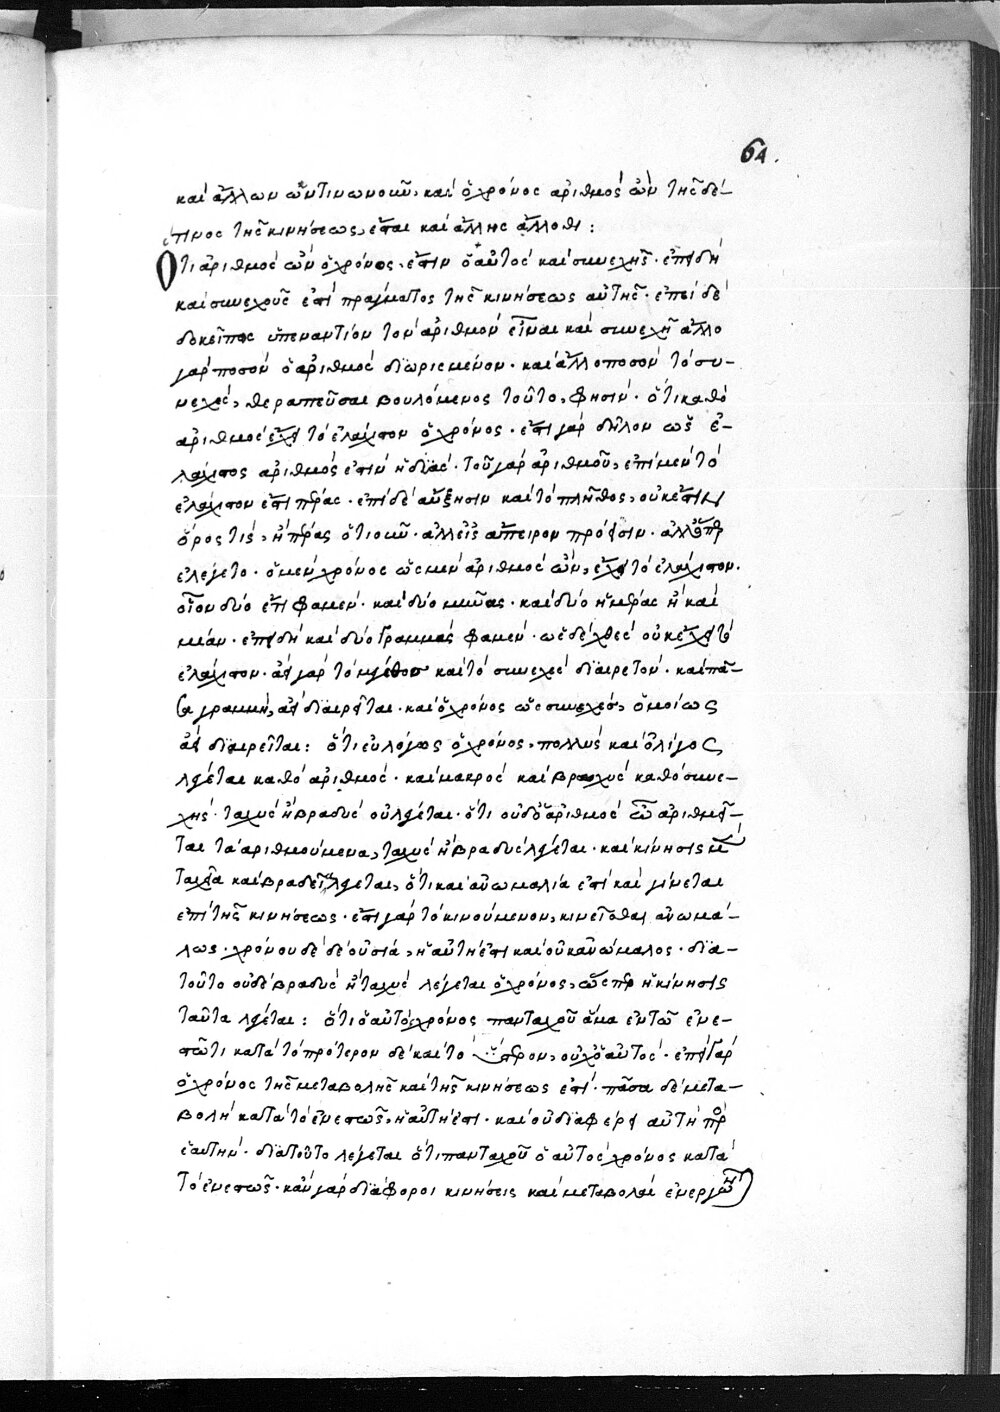 64.
καὶ ἄλλων ὧντινωνοῦν, καὶ ὁ χρόνος ἀριθμὸς ὢν τῆς δέ-
τινος τῆς κινήσεως, ἔσται καὶ ἄλλης ἄλλοθι :
Ὅτι ἀριθμὸς ὢν ὁ χρόνος, ἔστιν ὁ αὐτὸς καὶ συνεχὴς · ἐπειδὴ
καὶ συνεχοῦς ἐστὶ πράγματος τῆς κινήσεως αὐτῆς · ἐπεὶ δὲ
δοκεῖ πως ὑπεναντίον τὸν ἀριθμὸν εἶναι καὶ συνεχῆ ἄλλο
γὰρ ποσὸν ὁ ἀριθμὸς διωρισμένον · καὶ ἄλλο ποσὸν τὸ συ-
νεχὲς, θεραπεῦσαι βουλόμενος τοῦτο, φησὶν · ὅτι καθὸ
ἀριθμὸς ἔχει τὸ ἐλάχιστον ὁ χρόνος · ἔστι γὰρ δῆλον ὡς ἐ-
λάχιστος ἀριθμὸς ἐστὶν ἡ δυὰς · τοῦ γὰρ ἀριθμοῦ, ἐπὶ μὲν τὸ
ἐλάχιστον ἔστι πέρας · ἐπὶ δὲ αὔξησιν καὶ τὸ πλῆθος, οὐκέτι
ὅρος τίς, ἢ πέρας ὁτιοῦν · ἀλλ' εἰς ἄπειρον πρόεισιν · ἀλλ' ὅπερ
ἐλέγετο · ὁ μὲν χρόνος ὡς μὲν ἀριθμὸς ὢν, ἔχει τὸ ἐλάχιστον.
οἷον δύο ἔτι φαμὲν · καὶ δύο μῆνας · καὶ δύο ἡμέρας ἢ καὶ
μίαν · ἐπειδὴ καὶ δύο γραμμὰς φαμὲν · ὡς δὲ συνεχὲς οὐκ ἔχει τὸ
ἐλάχιστον · ἀεὶ γὰρ τὸ μέγεθος καὶ τὸ συνεχὲς διαιρετόν · καὶ πᾶ-
σα γραμμὴ, ἀεὶ διαιρεῖται · καὶ ὁ χρόνος ὡς συνεχὲς, ὁμοίως
ἀεὶ διαιρεῖται : ὅτι εὐλόγως ὁ χρόνος, πολλὺς καὶ ὀλίγος
λέγεται καθὸ ἀριθμὸς · καὶ μακρὸς καὶ βραχὺς καθὸ συνε-
χὴς · ταχὺς ἢ βραδὺς οὐ λέγεται · ὅτι οὐδ' ὁ ἀριθμὸς ᾧ ἀριθμεῖ-
ται τὰ ἀριθμούμενα, ταχὺς ἢ βραδὺς λέγεται · καὶ κίνησις μὲν
ταχεῖα καὶ βραδεῖα λέγεται, ὅτι καὶ ἀνωμαλία ἐστὶ καὶ γίνεται
ἐπὶ τῆς κινήσεως · ἔστι γὰρ τὸ κινούμενον, κινεῖσθαι ἀνωμά-
λως · χρόνου δὲ δὲ οὐσία, ἡ αὐτή ἐστι καὶ οὐκ ἀνώμαλος · διὰ
τοῦτο οὐδὲ βραδὺς ἢ ταχὺς λέγεται ὁ χρόνος, ὥσπερ ἡ κίνησις
ταῦτα λέγεται : ὅτι ὁ αὐτὸς χρόνος πανταχοῦ ἅμα ἐν τῷ ἐνε-
στῶτι κατὰ τὸ πρότερον δὲ καὶ τὸ ὕστερον, οὐχ ὁ αὐτὸς · ἐπεὶ γὰρ
ὁ χρόνος τῆς μεταβολῆς καὶ τῆς κινήσεως ἐστὶ · πᾶσα δὲ μετα-
βολὴ κατὰ τὸ ἐνεστὼς, ἡ αὐτή ἐστι · καὶ οὐ διαφέρει αὐτὴ πρὸς
ἑαυτὴν · διὰ τοῦτο λέγεται ὅτι πανταχοῦ ὁ αὐτὸς χρόνος κατὰ
τὸ ἐνεστὼς · κἂν γὰρ διάφοροι κινήσεις καὶ μεταβολαὶ ἐνεργῶν